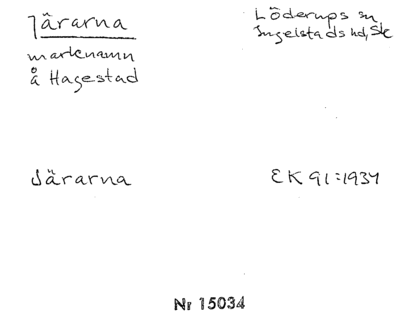 Järarna
Löderups sn
marknamn
Ingelstads hd, Sk
å Hagestad
Järarna
EK 91:1934
Nr 15034